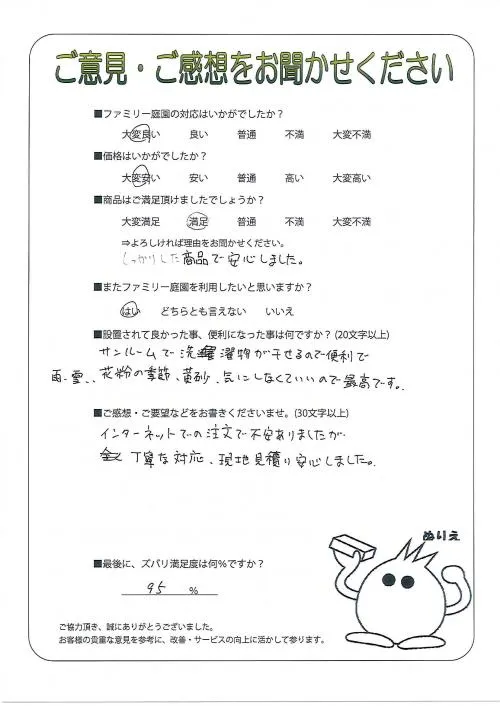 ご意見・ご感想をお聞かせください
■ファミリー庭園の対応はいかがでしたか？
大変良い 良い 普通 不満 大変不満
■価格はいかがでしたか？
大変安い 安い 普通 高い 大変高い
■商品はご満足頂けましたでしょうか？
大変満足 満足 普通 不満 大変不満
⇒よろしければ理由をお聞かせください。
しっかりした商品で安心しました。
■またファミリー庭園を利用したいと思いますか？
はい どちらとも言えない いいえ
■設置されて良かった事、便利になった事は何ですか？(20文字以上)
サンルームで洗濯物が干せるので便利で
雨、雪、花粉の季節、黄砂、気にしなくていいので最高です。
■ご感想・ご要望などをお書きくださいませ。(30文字以上)
インターネットでの注文で不安ありましたが
丁寧な対応、現地見積り安心しました。
ぬりえ
■最後に、ズバリ満足度は何%ですか？
95 %
ご協力頂き、誠にありがとうございました。
お客様の貴重な意見を参考に、改善・サービスの向上に活かして参ります。